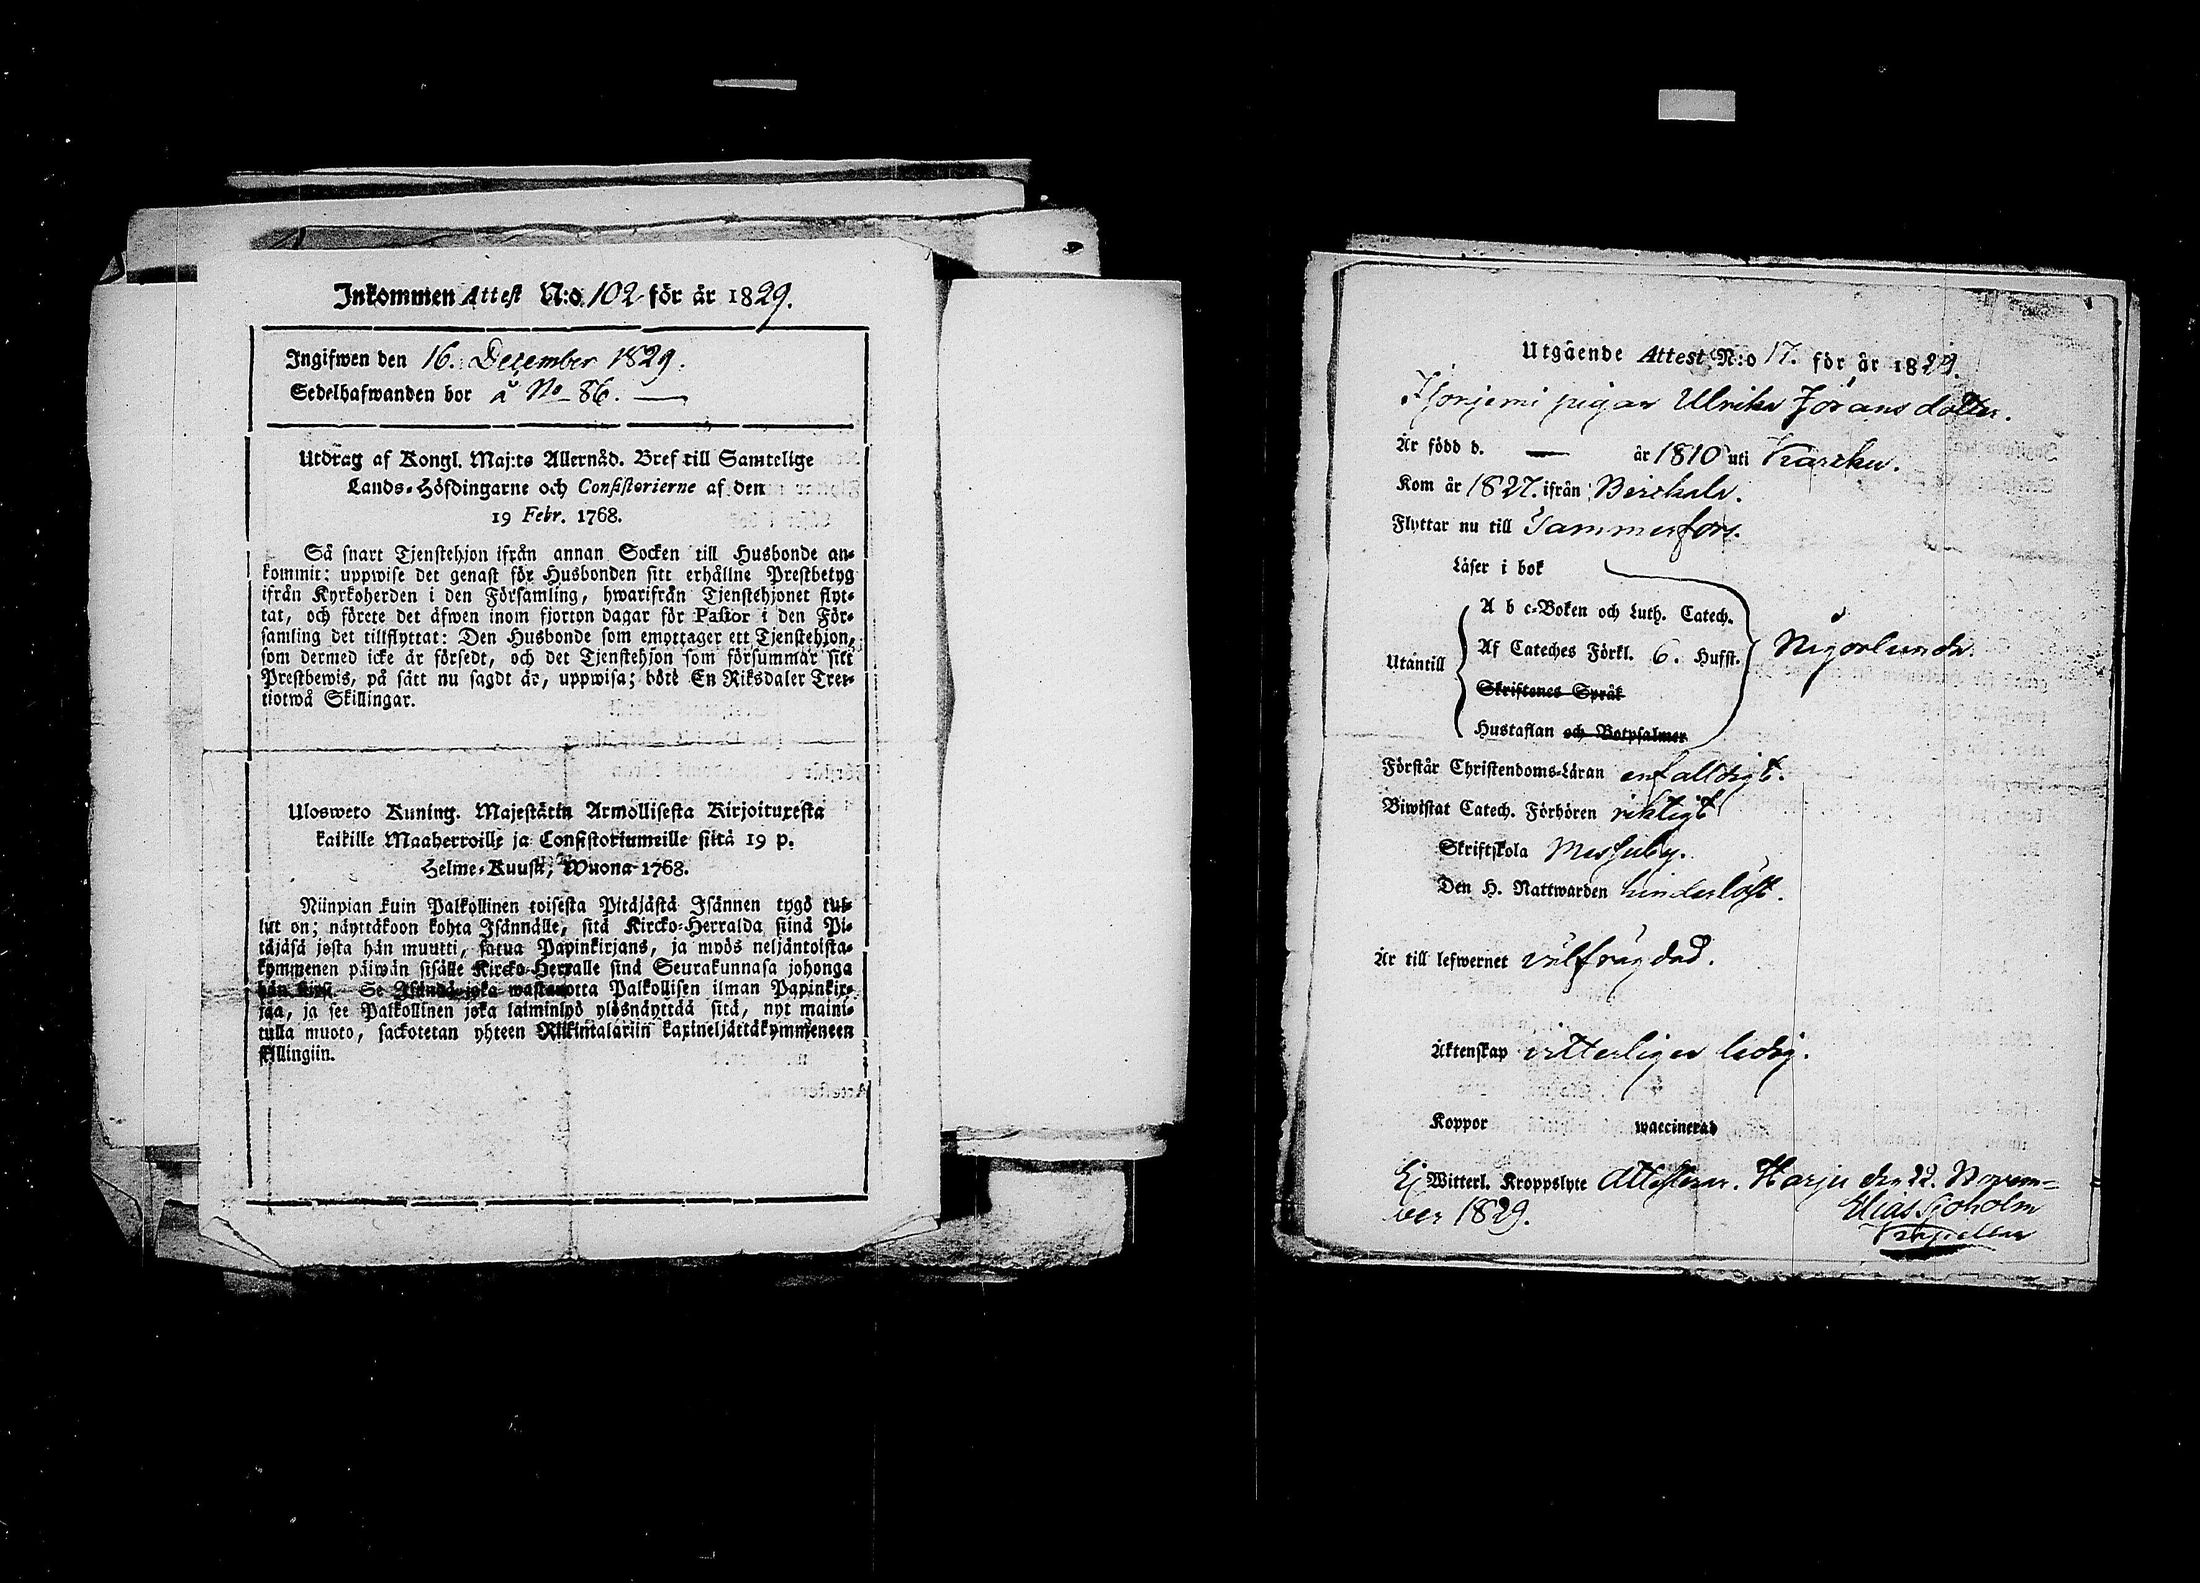 Inkommen Attest N:o 102 för år 1829.
Ingifwen den 16. December 1829.
Sedelhafwanden bor å No 86.
Utdrag af Kongl. Maj:ts Allernåd. Bref till Samtelige
Lands-Höfdingarne och Consistorierne af den
19 Febr. 1768.
Så snart Tjenstehjon ifrån annan Socken till Husbonde an-
kommit: uppwise det genast för Husbonden sitt erhållne Prestbetyg
ifrån Kyrkoherden i den Församling, hwarifrån Tjenstehjonet flyt-
tat, och förete det äfwen inom fjorton dagar för Pastor i den För-
samling det tillflyttat: Den Husbonde som emottager ett Tjenstehjon,
som dermed icke är försedt, och det Tjenstehjon som försummar sitt
Prestbewis, på sätt nu sagdt är, uppwisa; böte En Riksdaler Tret-
tiotwå Skillingar.
Ulosweto Kuning. Majestätin Armollisesta Kirjoituxesta
kaikille Maaherroille ja Consistoriumeille siitä 19 p.
Helme-Kuusa, Wuona 1768.
Niinpian kuin Palkollinen toisesta Pitäjästä Isännen tygö tul-
lut on; näyttäkoon kohta Isännälle, sitä Kircko-Herralda siinä Pi-
täjäsä josta hän muutti, saatua Papinkirjans, ja myös neljäntoista-
kymmenen päiwän sisälle Kircko-Herralle sinä Seurakunnasa johonga
hän tuli. Se Isändä joka wastanotta Palkollisen ilman Papinkir-
jaa, ja see Palkollinen joka laiminlyö ylösnäyttää sitä, nyt maini-
tulla muoto, sackotetan yhteen Riikintalariin kaxineljättäkymmeneen
skillingiin.
Utgående Attest N:o 17. för år 1829.
pigan Ulrika Jöransdotter.
Är född d. — år 1810 uti Karcku.
Kom år 1827. ifrån Birckala.
Flyttar nu till Tammerfors.
Läser i bok
A b c-Boken och Luth. Catech.
Utantill Af Cateches Förkl. 6. Hufst. Någorlunda.
Skriftenes Språk
Hustaflan och Botpsalmer
Förstår Christendoms-Läran enfalldigt.
Biwistat Catech. Förhören riktigt
Skriftskola Messuby.
Den H. Nattwarden hinderlöst.
Är till lefwernet välfrägdad.
Äktenskap vitterligen ledig.
Koppor waccinerad
Ej Witterl. Kroppslyte Attesterar. Harju den 22. Novem-
ber 1829. Elias Sjöholm
Kapellan